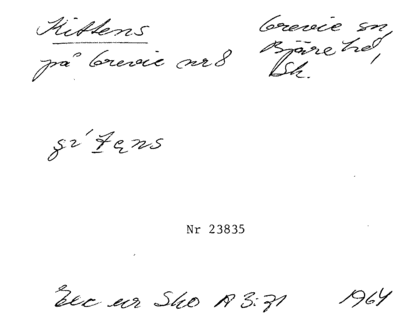 Kittens
Grevie sn,
på Grevie nr 8
Bjäre hd,
Sk.
Nr 23835
Exc ur Sko A 3:71
1964